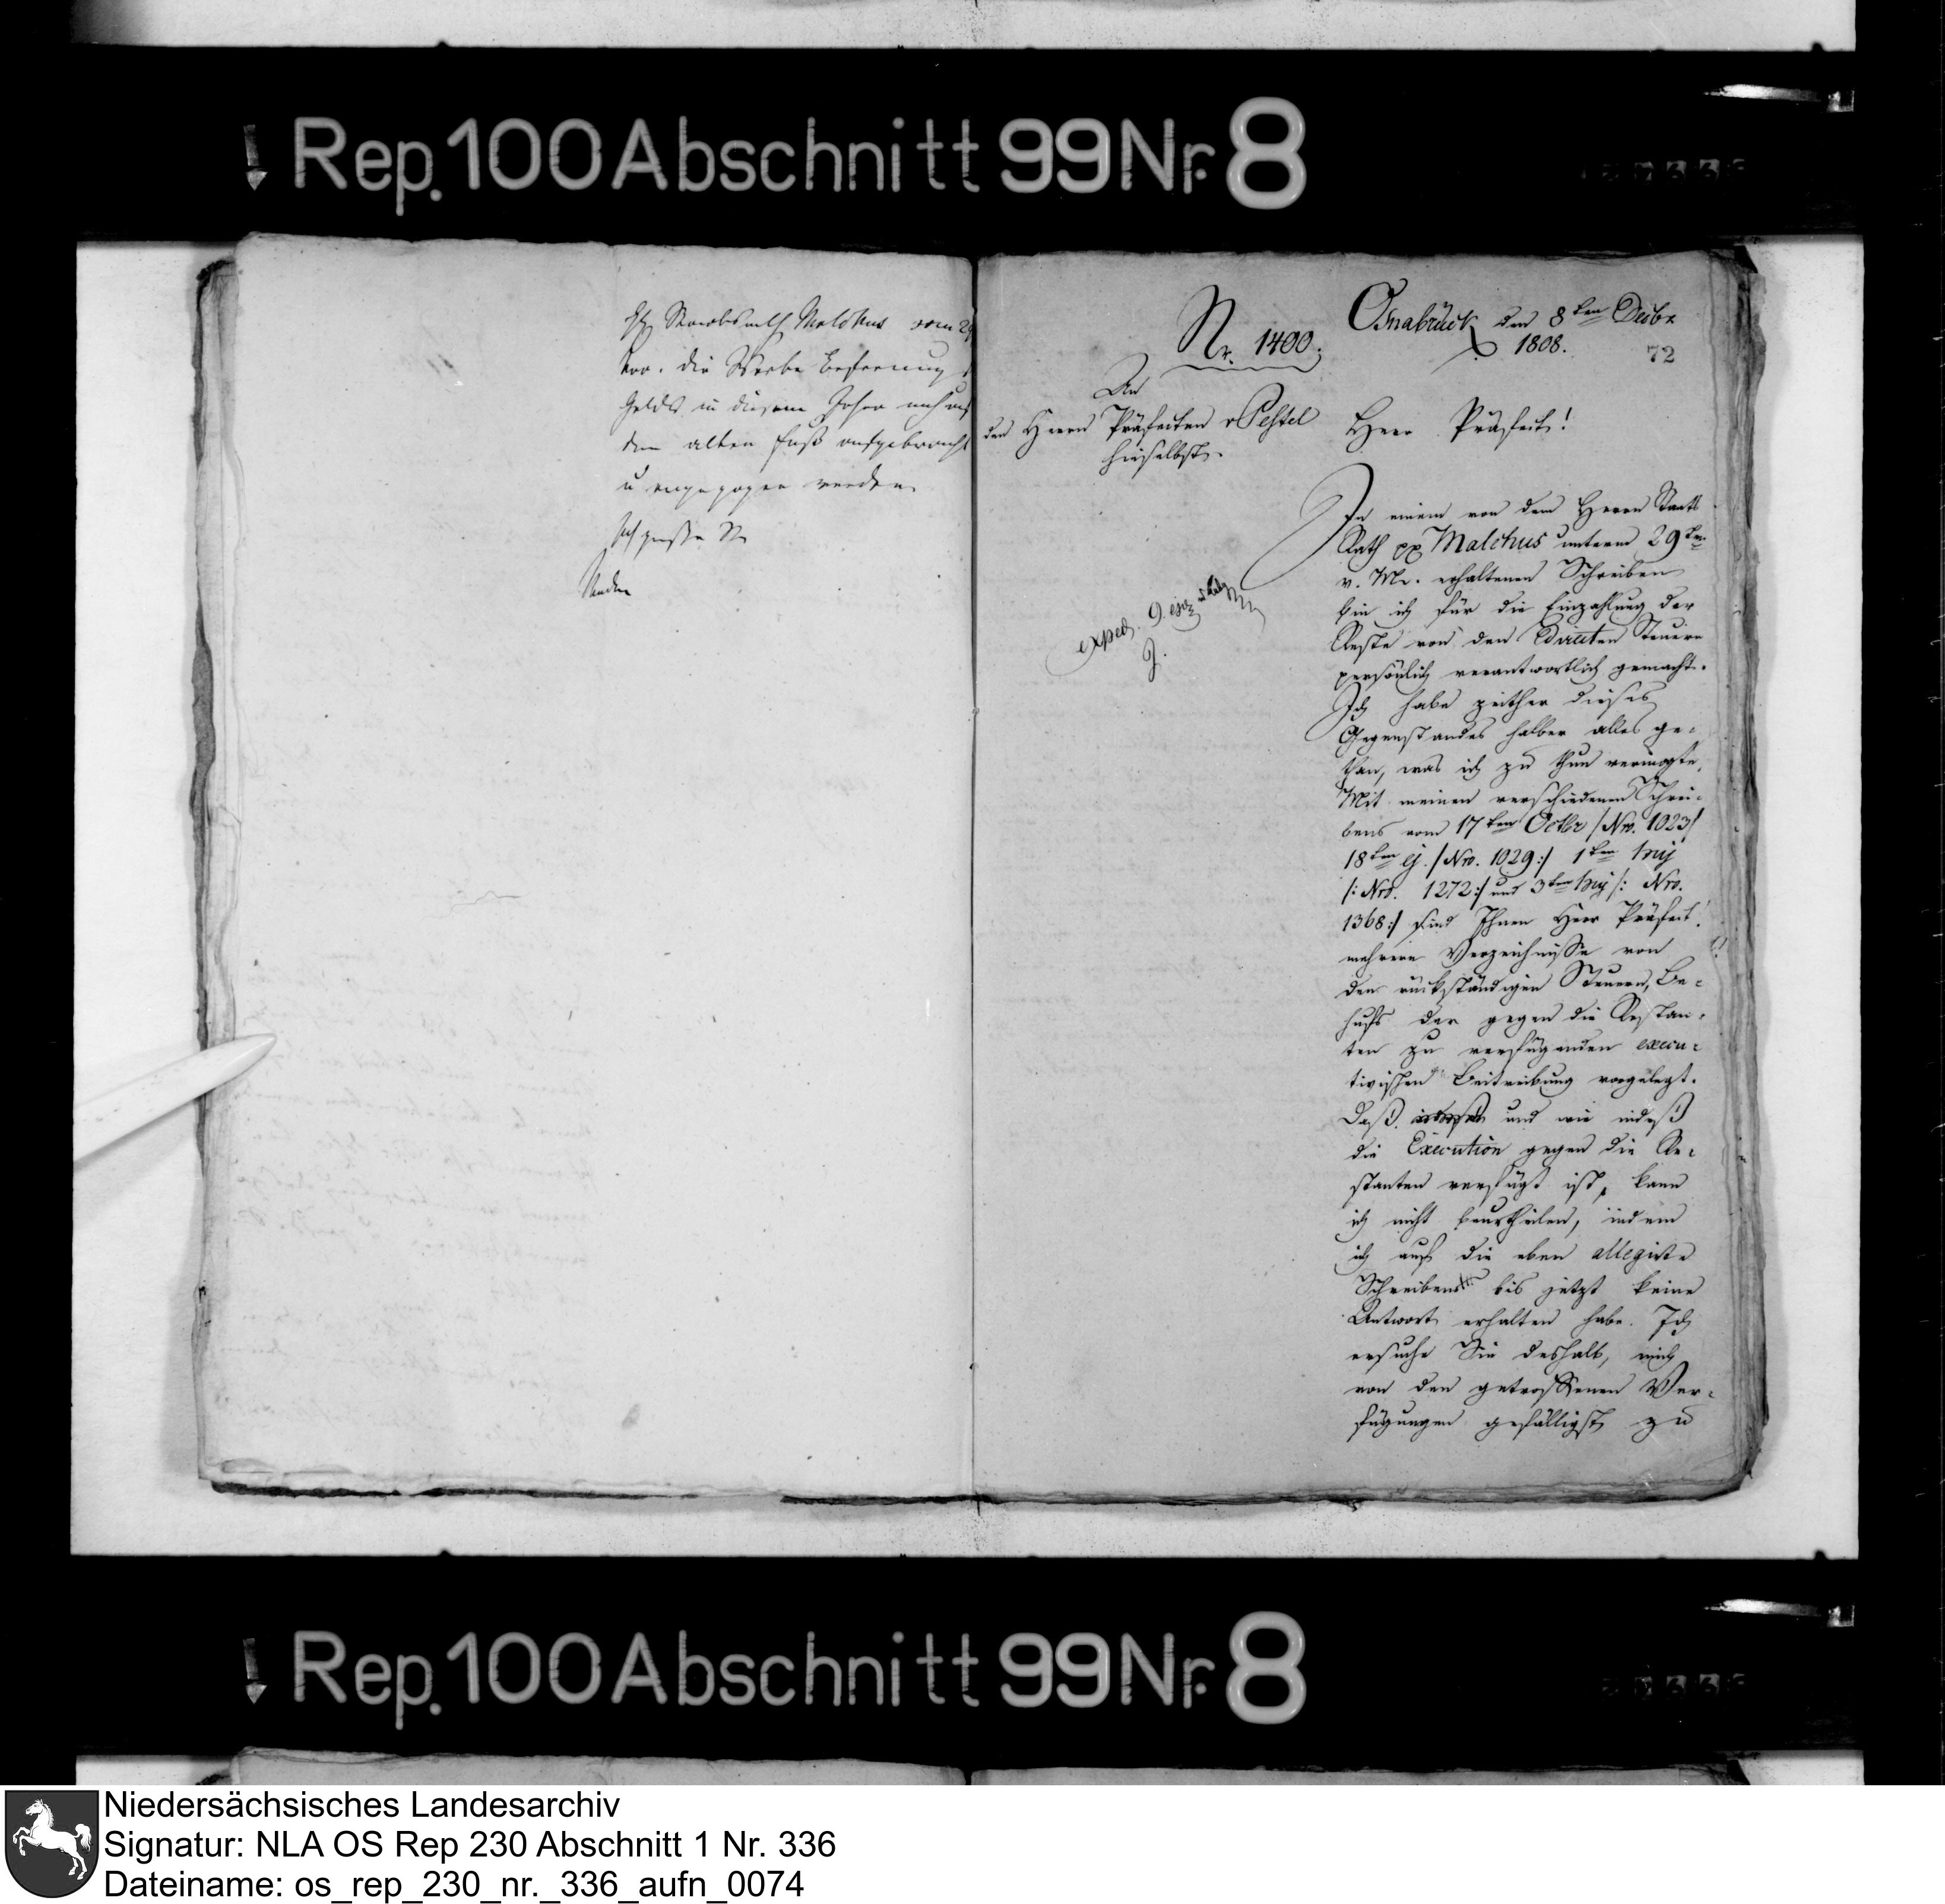 Rep. 100 Abschnitt 99 Nr. 8
H. Staatsrath Malchus vom 29
die
Geldes in diesem Jahre noch auf
dem alten Fuß aufgebracht
u werden
Ich grüße Sie
72
Osnabrück den 8ten Decbr
1808.
Nr. 1400.
An
den Herrn Präfecten v Pestel
hieselbst.
exped. 9. ej.
Herr Präfect!
In einem von dem Herrn Staats
Rath pp Malchus unterm 29ten
v. Mr. erhaltenen Schreiben
bin ich für die Einzahlung der
Reste von den Directen Steuern
persönlich verantwortlich gemacht.
Ich habe zeither dieses
Gegenstandes halber alles ge-
than, was ich zu thun vermogte.
Mit meinen verschiedenen Schrei-
bens vom 17ten Octbr /Nro. 1023/
18ten ej. /Nro. 1029:/ 1ten huj
/: Nro. 1272:/ und 3ten huj /: Nro.
1368:/ sind Ihnen Herr Präfect!
mehrere Verzeichnisse von
den rückständigen Steuern, Be-
hufs der gegen die Restan-
ten zu verfügenden execu-
tivischen Beitreibung vorgelegt.
Daß und wie indeß
die Execution gegen die Re-
stanten verfügt ist, kann
ich nicht beurtheilen, indem
ich auf die eben allegirte
Schreiben bis jetzt keine
Antwort erhalten habe. Ich
ersuche Sie deshalb, mich
von den getroffenen Ver-
fügungen gefälligst zu
Rep. 100 Abschnitt 99 Nr. 8
Niedersächsisches Landesarchiv
Signatur: NLA OS Rep 230 Abschnitt 1 Nr. 336
Dateiname: os_rep_230_nr._336_aufn_0074